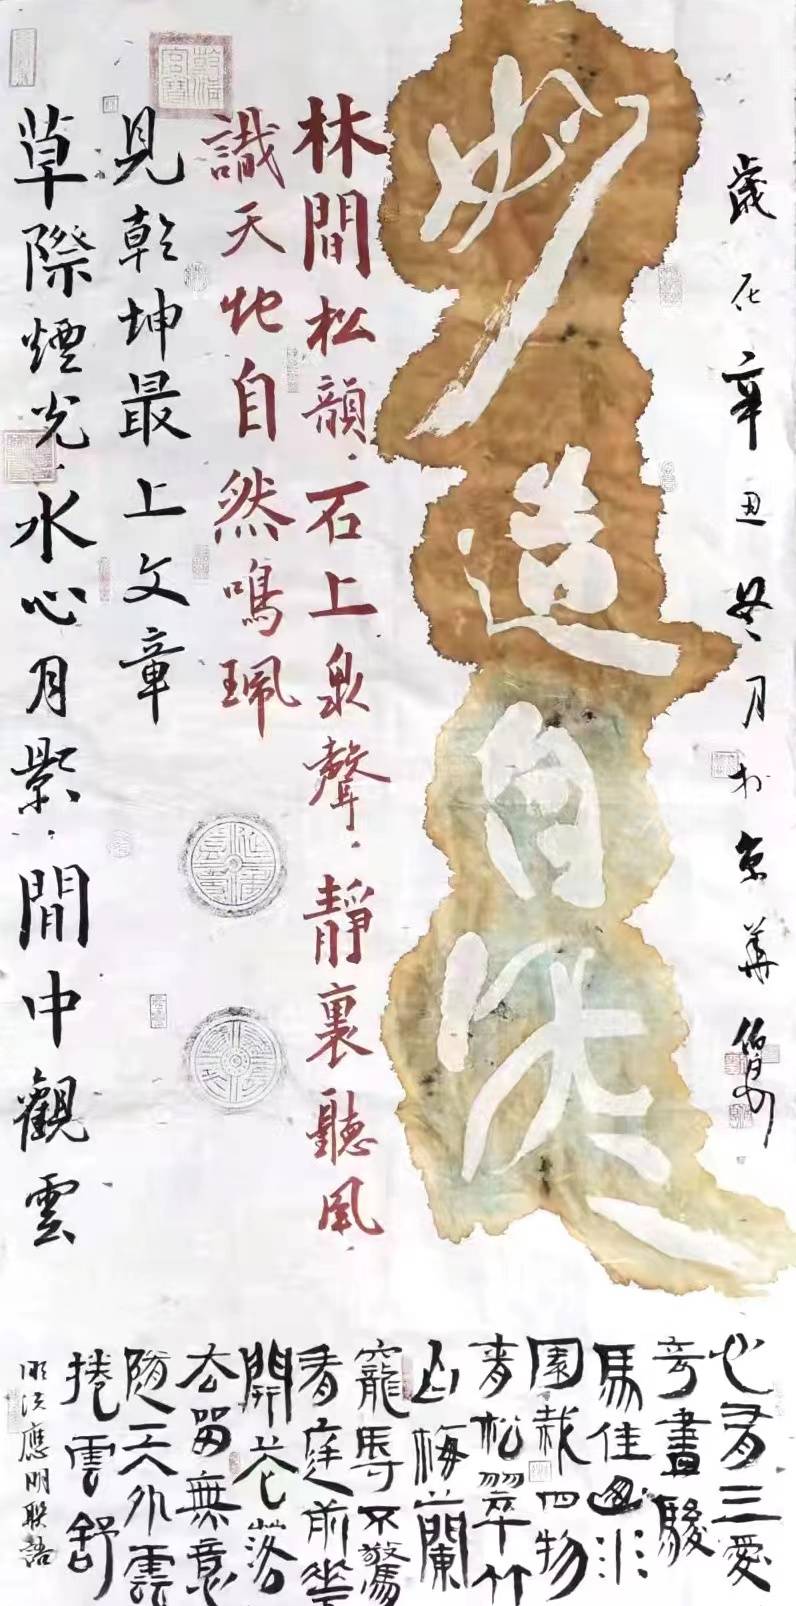 歲在辛丑冬月於京華
妙造自然
林間松韻石上泉聲靜裏聽風
識天地自然鳴珮
草際煙光水心月影閒中觀雲
見乾坤最上文章
心有三愛
奇書駿
馬佳山水
園栽四物
青松翠竹
白梅蘭
寵辱不驚
看庭前華
開花落
去留無意
隨天外雲
捲雲舒
明洪應明聯語